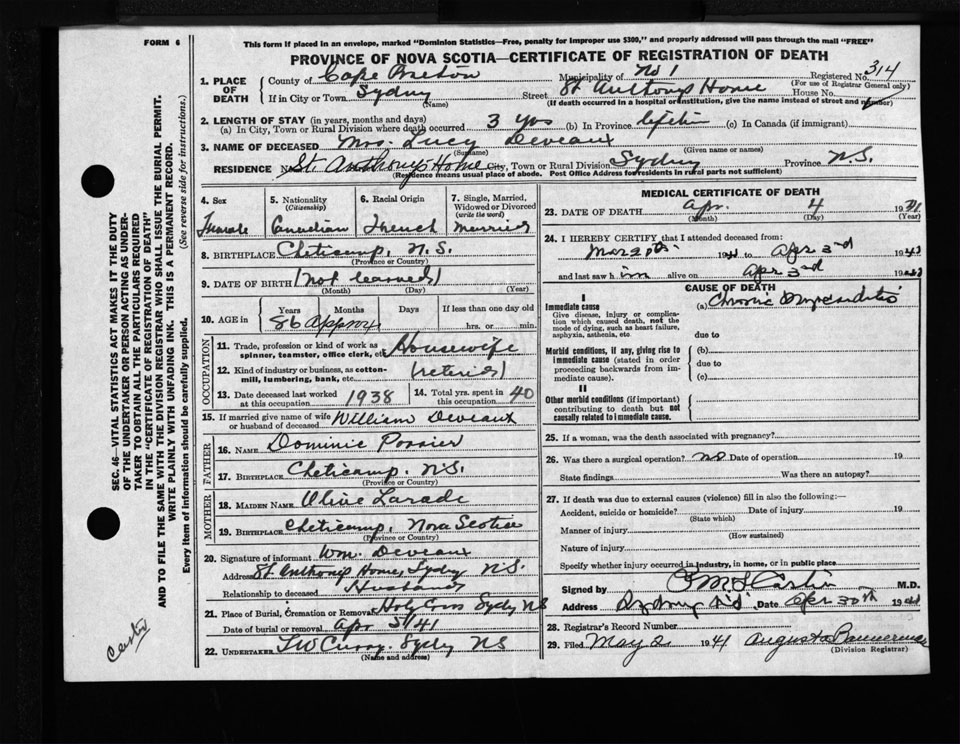 FORM 6
This form if placed in an envelope, marked "Dominion Statistics—Free, penalty for improper use $300," and properly addressed will pass through the mail "FREE"
PROVINCE OF NOVA SCOTIA—CERTIFICATE OF REGISTRATION OF DEATH
1. PLACE OF DEATH
County of Cape Breton Municipality of No 1 Registered No. 314
(For use of Registrar General only)
If in City or Town Sydney Street St Anthony Home House No.
(Name) (If death occurred in a hospital or institution, give the name instead of street and number)
2. LENGTH OF STAY (in years, months and days)
(a) In City, Town or Rural Division where death occurred 3 yrs (b) In Province lifetime (c) In Canada (if immigrant)
3. NAME OF DECEASED Mrs. Lucy Deveaux
(Surname) (Given name or names)
RESIDENCE No. St. Anthony Home City, Town or Rural Division Sydney Province N.S.
(Residence means usual place of abode. Post Office Address for residents in rural parts not sufficient)
4. Sex Female
5. Nationality (Citizenship) Canadian
6. Racial Origin French
7. Single, Married, Widowed or Divorced (write the word) Married
8. BIRTHPLACE Cheticamp, N.S.
(Province or Country)
9. DATE OF BIRTH (Not learned)
(Month) (Day) (Year)
10. AGE in Years Months Days If less than one day old
86 Approx hrs. or min.
OCCUPATION
11. Trade, profession or kind of work as spinner, teamster, office clerk, etc. Housewife
12. Kind of industry or business, as cotton-mill, lumbering, bank, etc. (retired)
13. Date deceased last worked at this occupation 1938
14. Total yrs. spent in this occupation 40
15. If married give name of wife or husband of deceased William Deveaux
FATHER
16. NAME Dominic Poirier
17. BIRTHPLACE Cheticamp. N.S.
(Province or Country)
MOTHER
18. MAIDEN NAME Olive Larade
19. BIRTHPLACE Cheticamp, Nova Scotia
(Province or Country)
20. Signature of informant Wm. Deveaux
Address St Anthony Home, Sydney N.S.
Relationship to deceased Husband
21. Place of Burial, Cremation or Removal Holy Cross Sydney NS
Date of burial or removal Apr 5/41
22. UNDERTAKER TW Curry. Sydney NS
(Name and address)
MEDICAL CERTIFICATE OF DEATH
23. DATE OF DEATH Apr. 4 1941
(Month) (Day) (Year)
24. I HEREBY CERTIFY that I attended deceased from:
1941 to Apr 3rd 1941
and last saw h im alive on Apr 3rd 1941
CAUSE OF DEATH
I
Immediate cause
Give disease, injury or complication which caused death, not the mode of dying, such as heart failure, asphyxia, asthenia, etc
(a) Chronic Myocarditis
due to
Morbid conditions, if any, giving rise to immediate cause (stated in order proceeding backwards from immediate cause).
(b)
due to
(c)
II
Other morbid conditions (if important) contributing to death but not causally related to immediate cause.
25. If a woman, was the death associated with pregnancy?
26. Was there a surgical operation? no Date of operation 19
State findings Was there an autopsy?
27. If death was due to external causes (violence) fill in also the following:—
Accident, suicide or homicide? Date of injury 19
(State which)
Manner of injury
(How sustained)
Nature of injury
Specify whether injury occurred in industry, in home, or in public place
Signed by M.D.
Address Sydney N.S. Date Apr 30th 1941
28. Registrar's Record Number
29. Filed May 2 1941 Augusta Bannerman
(Division Registrar)
SEC. 46—VITAL STATISTICS ACT MAKES IT THE DUTY
OF THE UNDERTAKER OR PERSON ACTING AS UNDER-
TAKER TO OBTAIN ALL THE PARTICULARS REQUIRED
IN THE "CERTIFICATE OF REGISTRATION OF DEATH"
AND TO FILE THE SAME WITH THE DIVISION REGISTRAR WHO SHALL ISSUE THE BURIAL PERMIT.
WRITE PLAINLY WITH UNFADING INK. THIS IS A PERMANENT RECORD.
Every item of information should be carefully supplied. (See reverse side for instructions.)